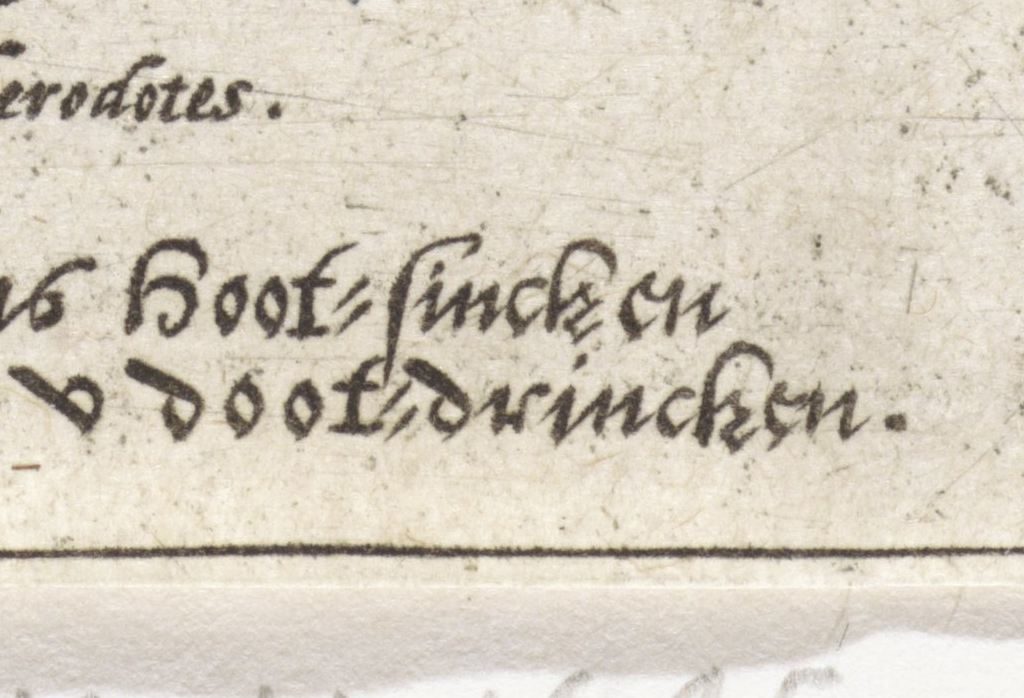 erodotes.
us hoot-sincken
v doot-drincken.